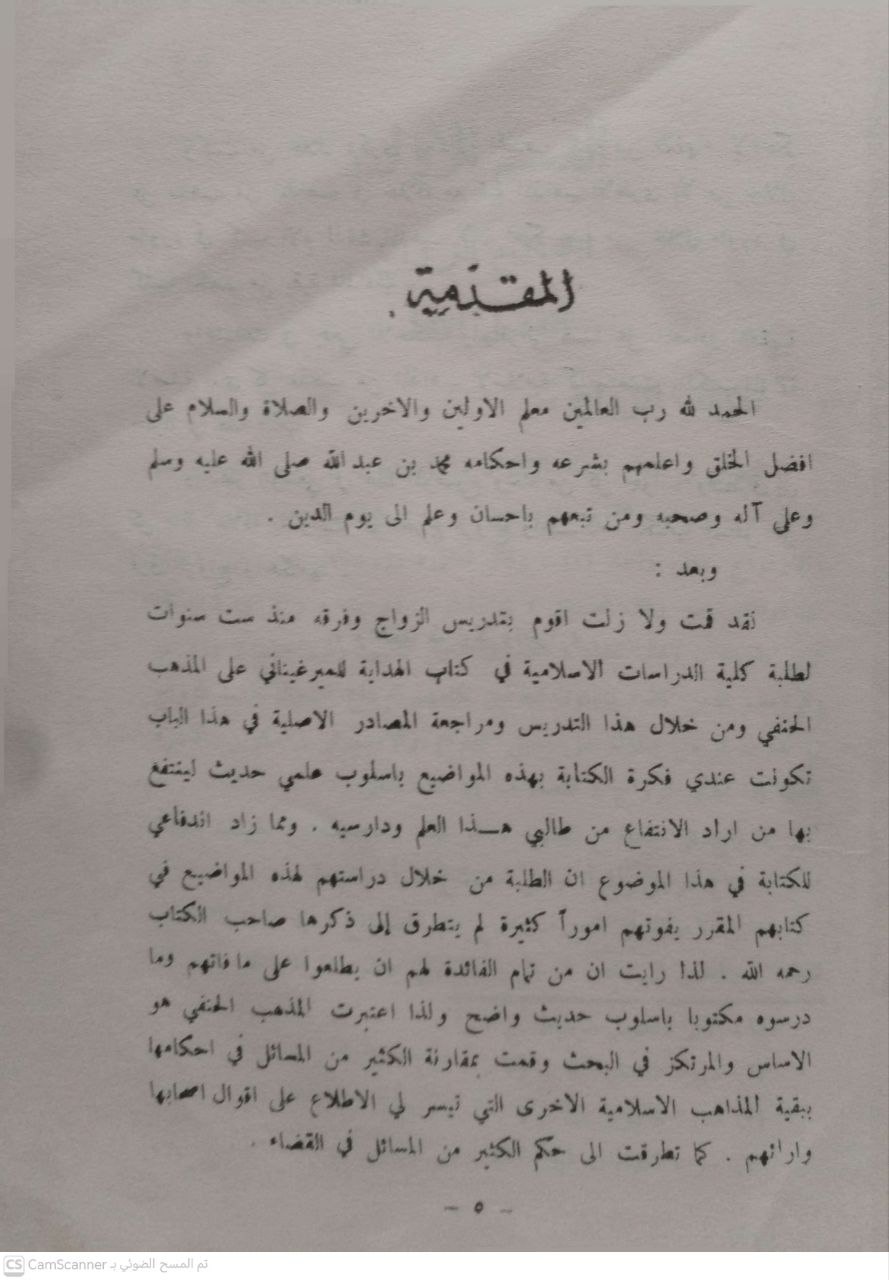 المقدمة
الحمد لله رب العالمين معلم الاولين والاخرين والصلاة والسلام على
افضل الخلق واعلمهم بشرعه واحكامه محمد بن عبد الله صلى الله عليه وسلم
وعلى آله وصحبه ومن تبعهم باحسان وعلم الى يوم الدين .
وبعد :
نقد قمت ولا زلت اقوم بتدريس الزواج وفرقه منذ ست سنوات
لطلبة كلية الدراسات الاسلامية في كتاب الهداية للميرغيناني على المذهب
الحنفي ومن خلال هذا التدريس ومراجعة المصادر الاصلية في هذا الباب
تكونت عندي فكرة الكتابة بهذه المواضيع باسلوب علمي حديث لينتفع
بها من اراد الانتفاع من طالبي هـذا العلم ودارسيه . ومما زاد اندفاعي
للكتابة في هذا الموضوع ان الطلبة من خلال دراستهم لهذه المواضيع في
كتابهم المقرر يفوتهم اموراً كثيرة لم يتطرق إلى ذكرها صاحب الكتاب
رحمه الله . لذا رايت ان من تمام الفائدة لهم ان يطلعوا على ما فاتهم وما
درسوه مكتوبا باسلوب حديث واضح ولذا اعتبرت المذهب الحنفي هو
الاساس والمرتكز في البحث وقمت بمقارنة الكثير من المسائل في احكامها
ببقية المذاهب الاسلامية الاخرى التي تيسر لي الاطلاع على اقوال اصحابها
وارائهم . كما تطرقت الى حكم الكثير من المسائل في القضاء .
- ٥ -
CS CamScanner تم المسح الضوئي بـ